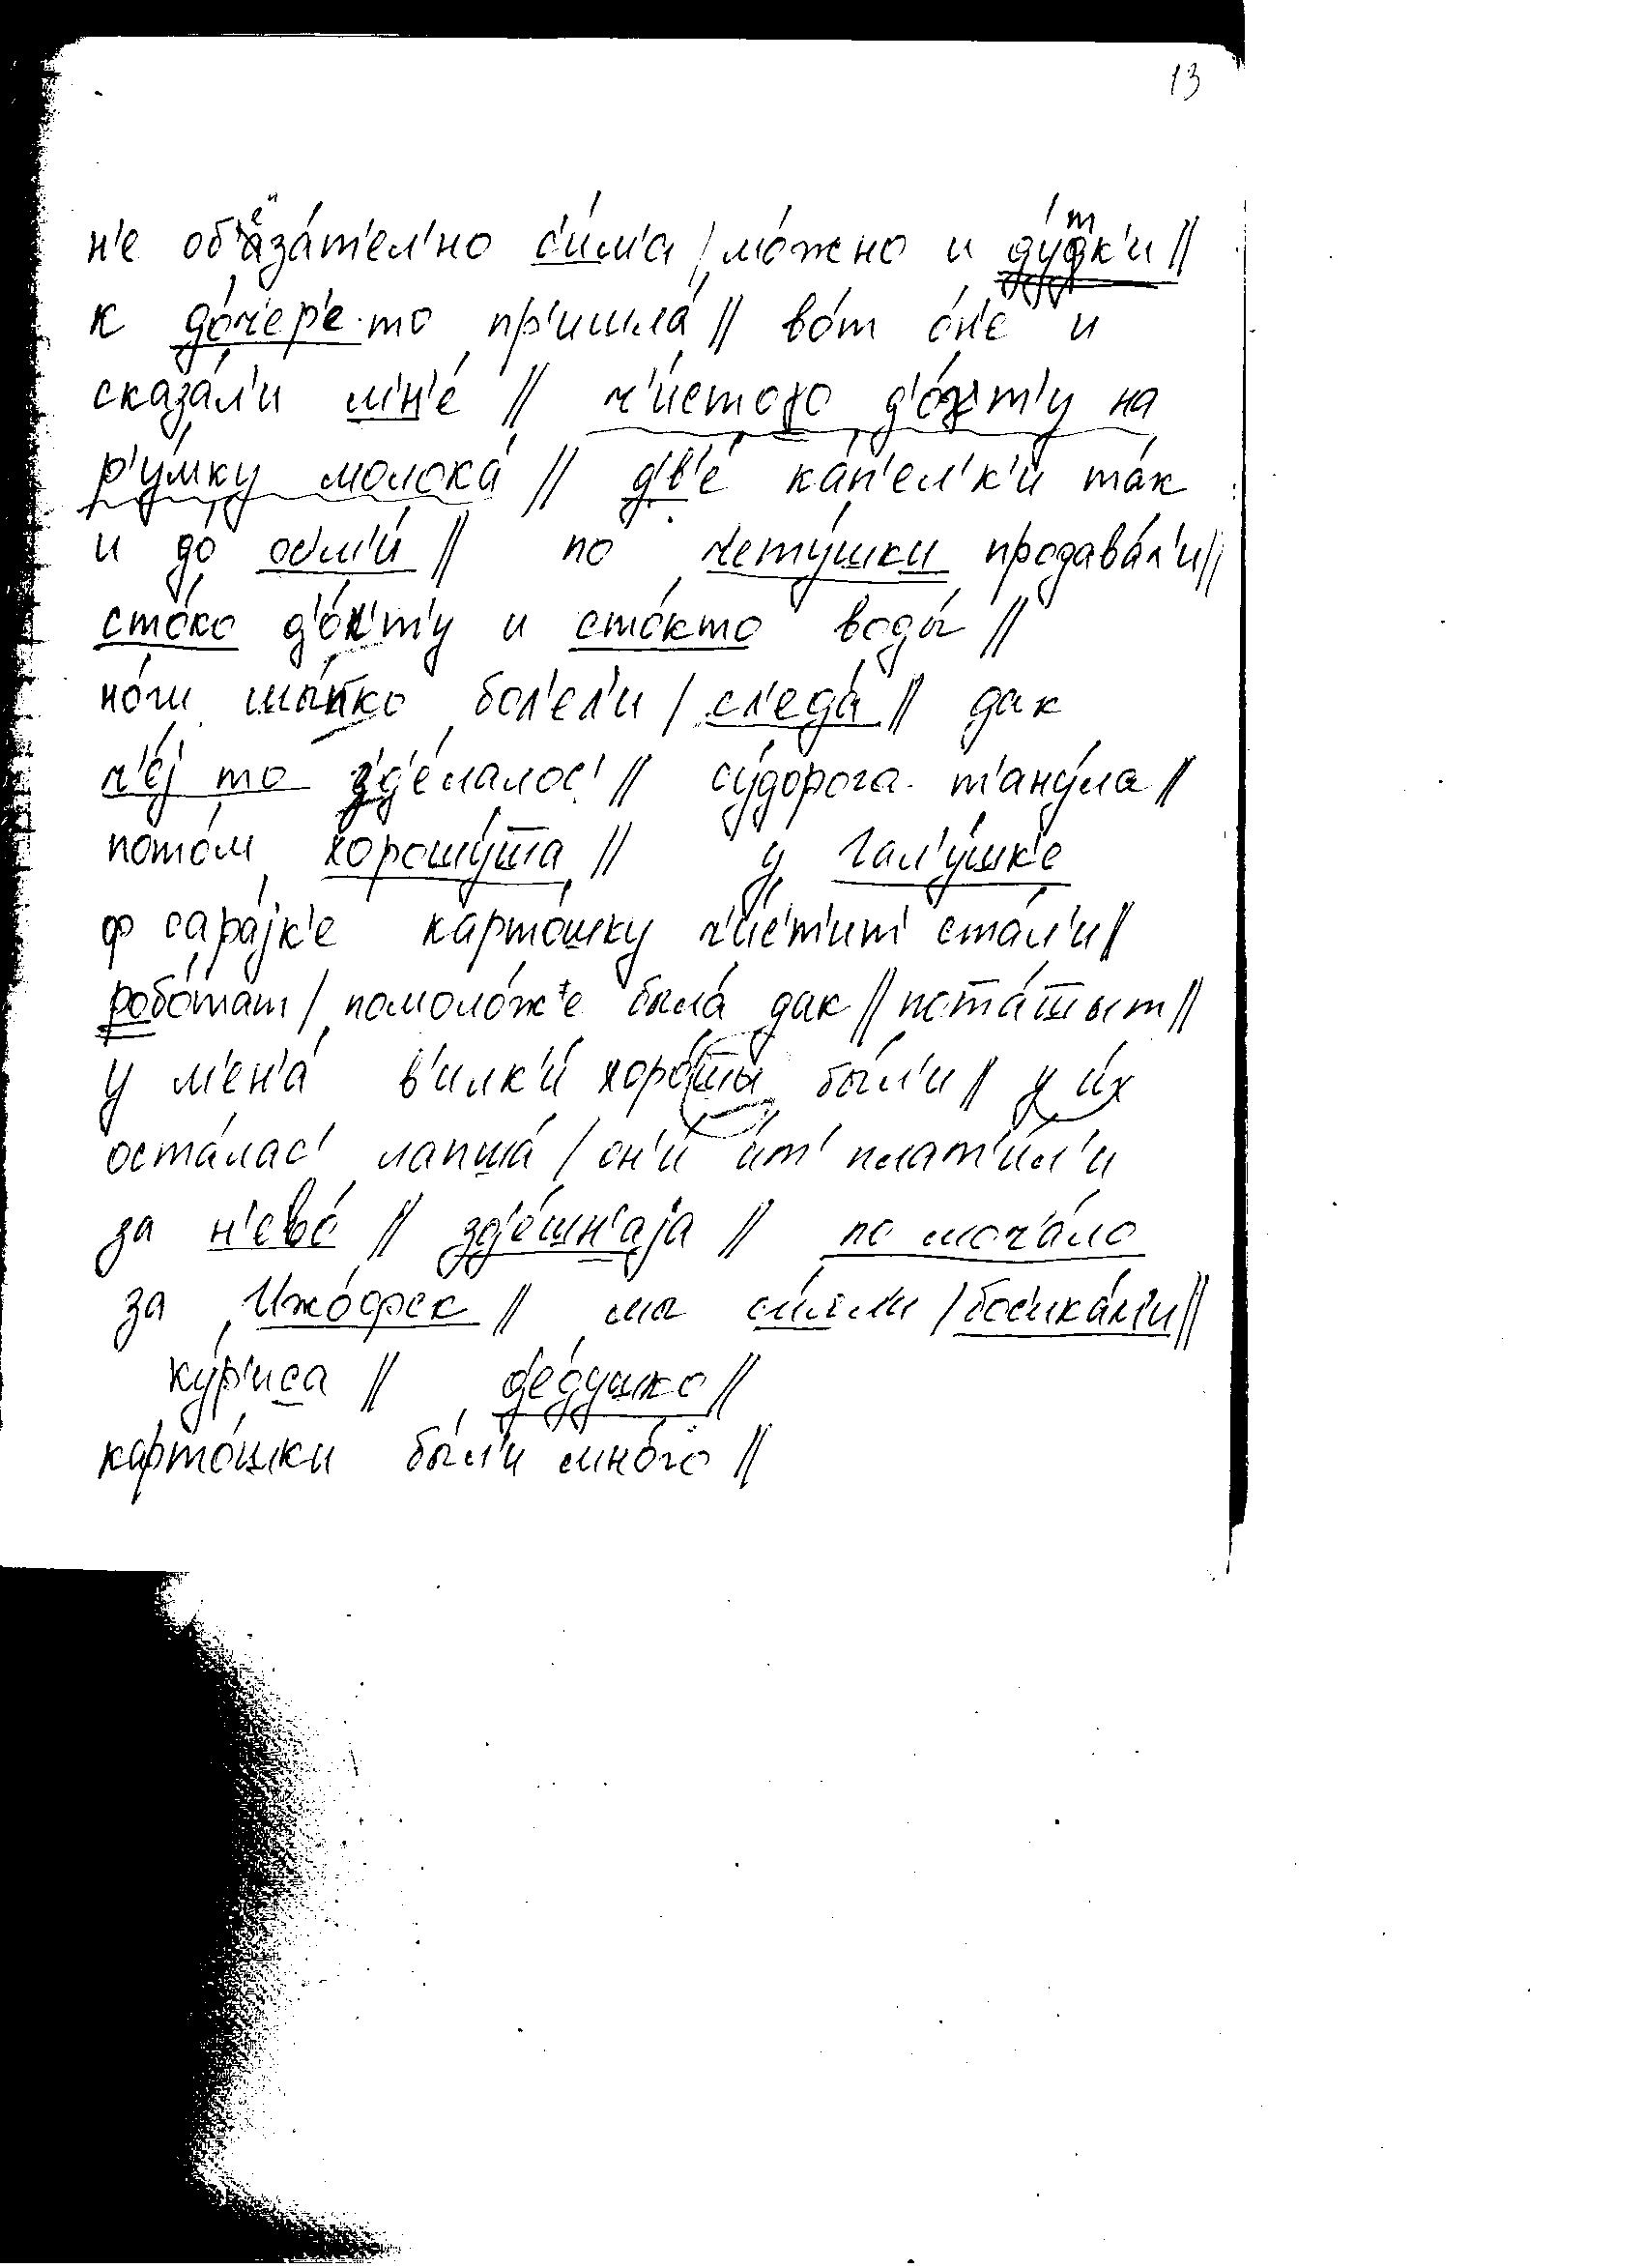 13
н'е об'аза́т'ел'но с'и́м'а / мо́жно и ду́тк'и //
к до́ч'ер'е-то пр'ишла́ // во́т о́н'е и
сказа́л'и м'н'е́ // ч'и́стого д'о́хт'у на
р'у́мку молока́ // дв'е́ ка́п'ел'к'и та́к
и до осм'и́ // по чету́шки продава́л'и //
сто́ко д'о́хт'у и сто́кто воды́ //
но́ги ша́пко бол'е́л'и / сл'еда́ // дак
ч'е́j то зд'е́лалос' // су́дорога т'ану́ла //
пото́м хорошу́ша // у Гал'у́шк'е
ф сара́jк'е карто́шку ч'и́ст'ит' ста́л'и //
робо́тат / помоло́же была́ дак // пота́шыт //
у м'ен'а́ в'и́лк'и хоро́шы бы́л'и // у и́х
оста́лас' лапша́ / он'и́ и́т' плат'и́л'и
за н'ево́ // зд'е́шн'аjа // по моч'а́ло
за Ижо́фск // мы с'и́л'и / бос'ика́м'и //
ку́р'иса // д'е́душко //
карто́шки бы́л'и мно́го //